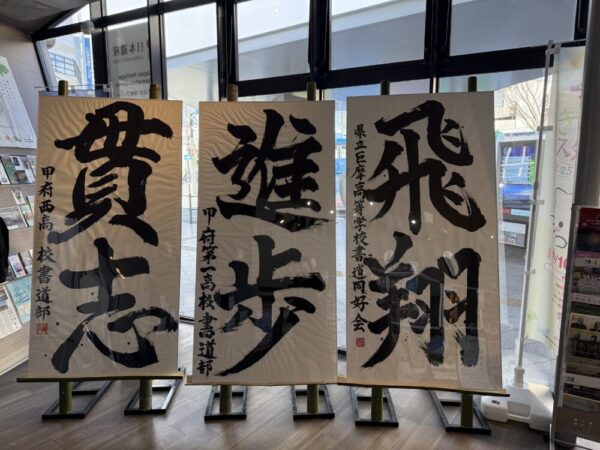 飛翔
県立巨摩高等学校書道同好会
進歩
甲府第一高校書道部
貫志
甲府西高校書道部
日本遺産
Japan Heritage